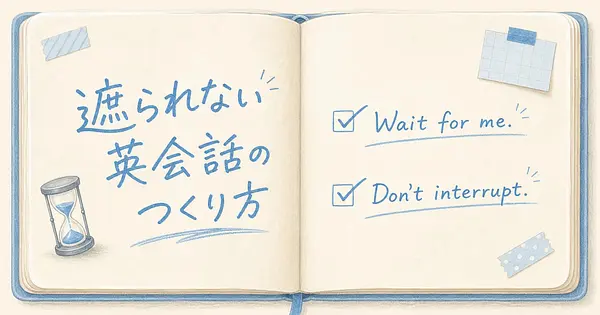 遮られない
英会話の
つくり方
Wait for me.
Don't interrupt.